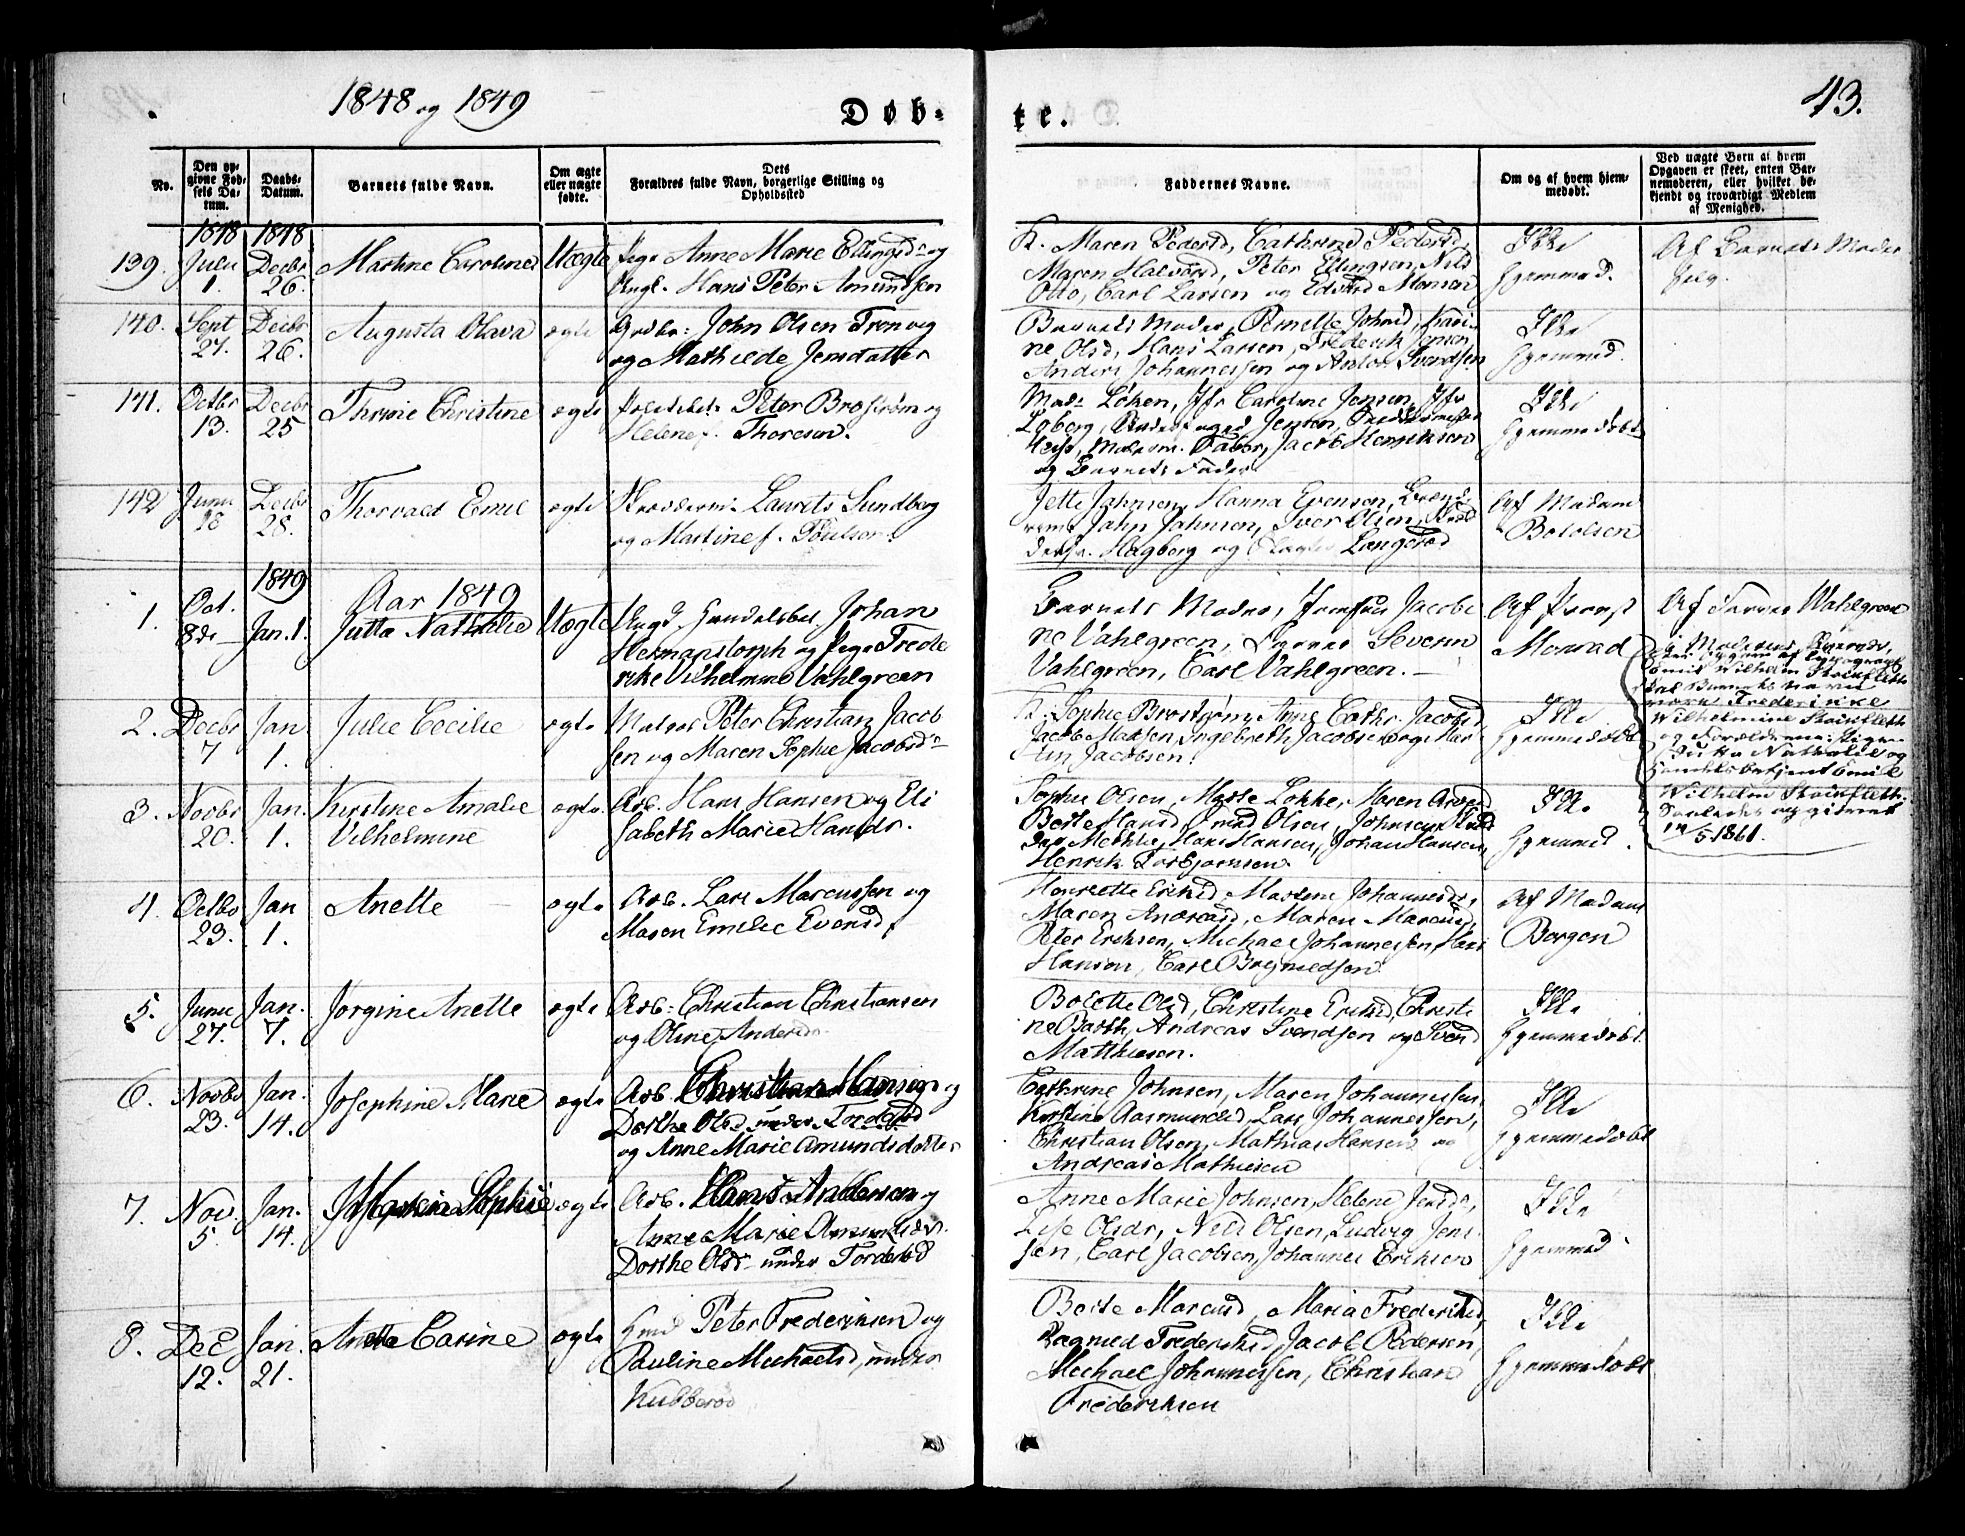 1848 og 1849
Døb-
te.
43.
No.
Den op-
givne Fød-
sels Da-
tum.
Daabs-
Datum.
Barnets fulde Navn.
Om ægte
eller uægte
fødte.
Dets
Forældres fulde Navn, borgerlige Stilling og
Opholdssted
Faddernes Navne.
Om og af hvem hjem-
medøbt.
Ved uægte Børn af hvem
Opgaven er skeet, enten Bar-
nemoderen, eller hvilket be-
kjendt og troværdigt Medlem
af Menighed.
1848 1848
139. Julii 1. Decbr 26. Martine Caroline Uægte Pige Anne Marie Ellingsd. og
Ungk. Hans Peter Amundsen
K. Maren Pedersd, Cathrine Pedersd,
Maren Halvorsd, Peter Ellingsen, Nils
Otto, Carl Larsen og Edvard Monsen
Ikke
hjemmed.
Af Barnets Moder
selv.
140. Sept 27. Decbr 26. Augusta Olava ægte Grdbr: John Olsen Tronvig
og Mathilde Jensdatter
Barnets Moder, Pernelle Johnsd, Kari-
ne Olsd, Hans Larsen, Frederik Jensen,
Anders Johannessen og Anton Svendsen
Ikke
hjemmed.
141. Octbr 13. Decbr 25 Thrine Christine ægte Politibet. Peter Broström og
Helene f. Thoresen.
Mad. Løken, Jfr Caroline Jensen, Jfr
Løberg, Jensen,
Faber, Jacob Henriksen
og Barnets Fader
Ikke
hjemmedøbt
142 Junii 28 Decbr 28. Thorvald Emil ægte Laurits Sundberg
og Martine f. Poulsen.
Jette Jahnsen, Hanna Evensen,
Jahn Jahnsen, Iver Olsen,
Hagberg og Langerød
Af Madam
Bololsen
1849
Aar 1849
1. Oct. 8de Jan. 1. Jutta Nathalie Uægte Ungk. Handelsbet. Johan
Hermanstorph og Pige Frede
rikke Vilhelmine Vahlgreen
Barnets Moder, Jomfru Jacobi
ne Vahlgreen, Severin
Vahlgreen, Carl Vahlgreen.
Af Provst
Monrad
Af Vahlgreen
Emil Wilhelm Stockfleth
Barnets navn
Frederikke
Wilhelmine Stockfleth
og Forældrene: Pigen
Jutta Nathalie og
Handelsbetjent Emil
Wilhelm Stockfleth.
Saaledes opgivet
14/5 1861.
2. Decbr 7 Jan 1. Julie Cecilie ægte Matros Peter Christian Jacob
sen og Maren Sophie Jacobsd.
K. Sophie Brostrøm, Anne Cathr. Jacobsd,
Jacob Madsen, Ingebreth Jacobsen og Mar
tin Jacobsen.
Ikke
hjemmedøbt
3. Novbr 20. Jan. 1. Kirstine Amalie
Vilhelmine
ægte Arb. Hans Hansen og Eli
sabeth Marie Hansdr.
Sophie Olsen, Mette Løkke, Maren
Berte Hansd, Olsen, Johnsen
Hans Hansen, Johan Hansen,
Henrik Torbjørnsen
Ikke
hjemmed.
4. Octbr 23. Jan 1. Anette ægte Arb. Lars Marcussen og
Maren Emilie Evensd,
Henriette Eriksd, Martine Johannesdr,
Maren Andreasd, Maren Marcusd,
Peter Eriksen, Michael Johannessen, Hans
Hansen, Carl Bagnedsen.
Af Madam
Borgen
5. Junii 27. Jan. 7. Jorgine Anette ægte Arb: Christian Christiansen
og Oline Andersd.
Bolette Olsd, Christine Eriksd, Christi
ne Barth, Andreas Svendsen og Svend
Mathiesen.
Ikke
hjemmedøbt.
6. Novbr 23. Jan. 14. Josephine Marie ægte Arb. Christian Hansen og
Dorthe Olsd under Torderød
og Anne Marie Amundsdatter
Cathrine Johnsen, Maren Johannessen,
Kirstine Aasmundsd, Lars Johannessen,
Christian Olsen, Mathias Hansen og
Andreas Mathiesen
Ikke
hjemmedøbt
7. Nov. 5 Jan. 14. Sophie ægte Arb. Hans Andersen og
Anne Marie Amundsdr.
Dorthe Olsdr. under Torderød
Anne Marie Johnsen, Helene Jensdr,
Lise Olsdr, Nils Olsen, Ludvig Jens
sen, Carl Jacobsen, Johannes Eriksen
Ikke
hjemmed.
8. Dec 12. Jan. 21. Anette Carine ægte Peter Frederiksen og
Pauline Michaelsd, under
Kubberød
Berte Marcusd, Maria Frederiksd,
Ragnild Frederiksd, Jacob Pedersen,
Michael Johannessen, Christian
Frederiksen
Ikke
hjemmedøbt